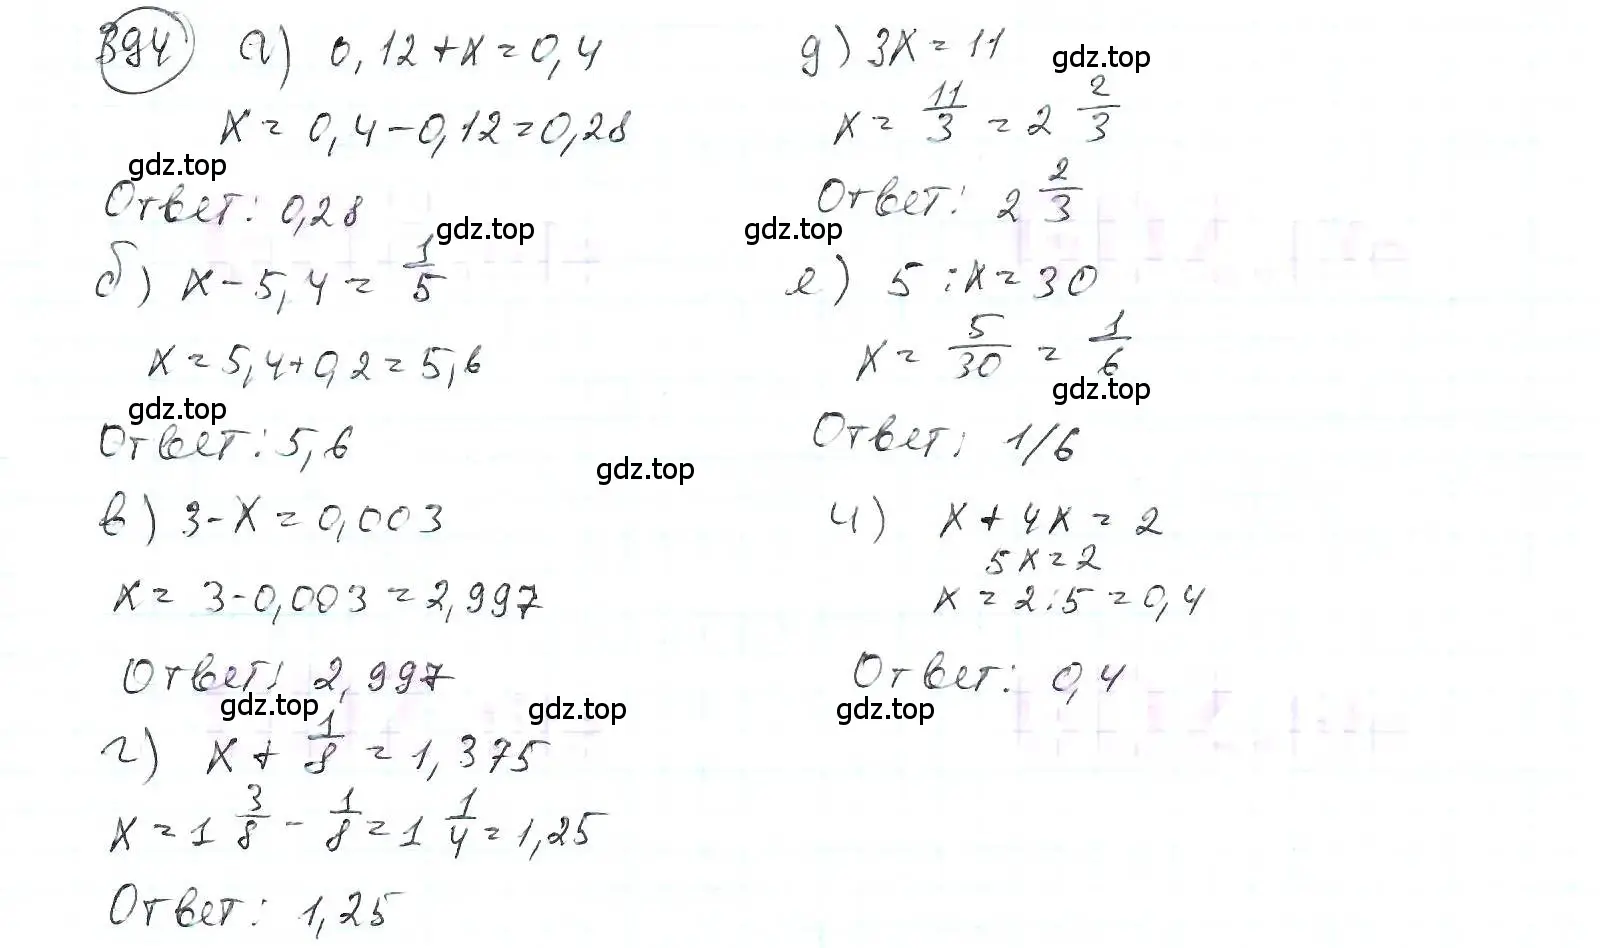 394 а) 0,12+x=0,4
x = 0,4-0,12=0,28
gdz.top
Ответ: 0,28
gdz.top
б) x-5,4 = 1/5
x=5,4+0,2=5,6
gdz.top
Ответ: 5,6
gdz.top
в) 3-x=0,003
x= 3-0,003=2,997
Ответ: 2,997
gdz.top
gdz.top
г) x+ 1/8 =1,375
x=1 3/8 - 1/8 =1 1/4 =1,25
Ответ: 1,25
д) 3x=11
gdz.top
x= 11/3 =2 2/3
Ответ: 2 2/3
gdz.top
е) 5:x=30
x= 5/30 = 1/6
gdz.top
Ответ: 1/6
ч) x+4x=2
5x=2
x=2:5=0,4
Ответ: 0,4
gdz.top